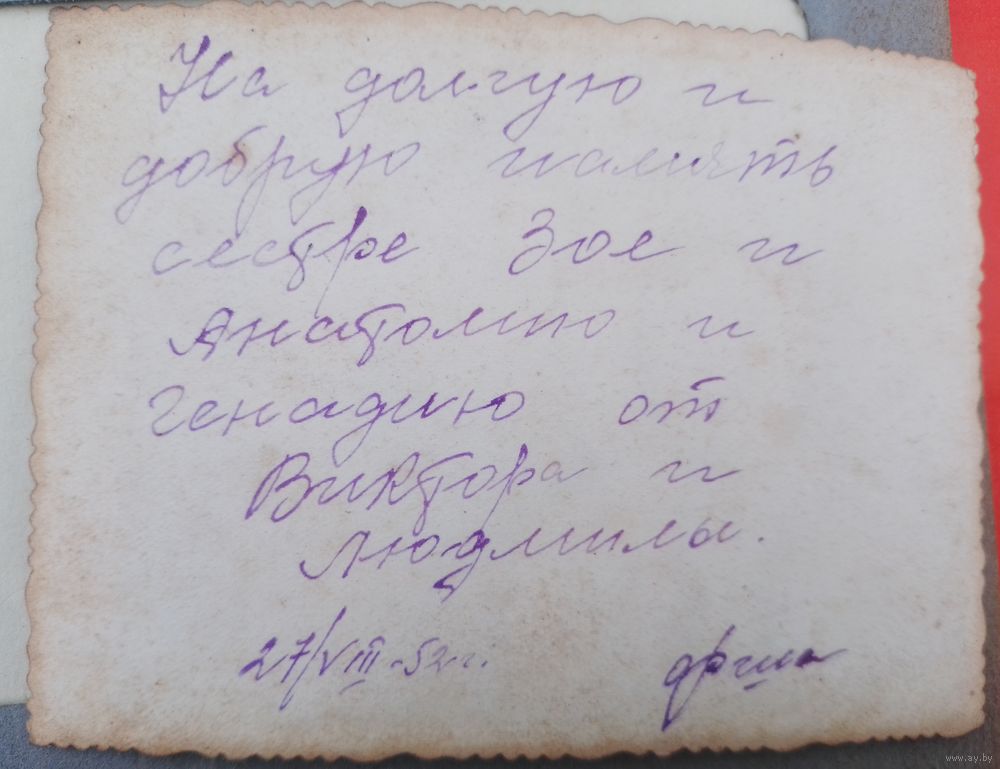 На долгую и
добрую память
сестре Зое и
Анатолию и
Генадию от
Виктора и
Людмилы.
27/VIII-52 г.
www.ay.by